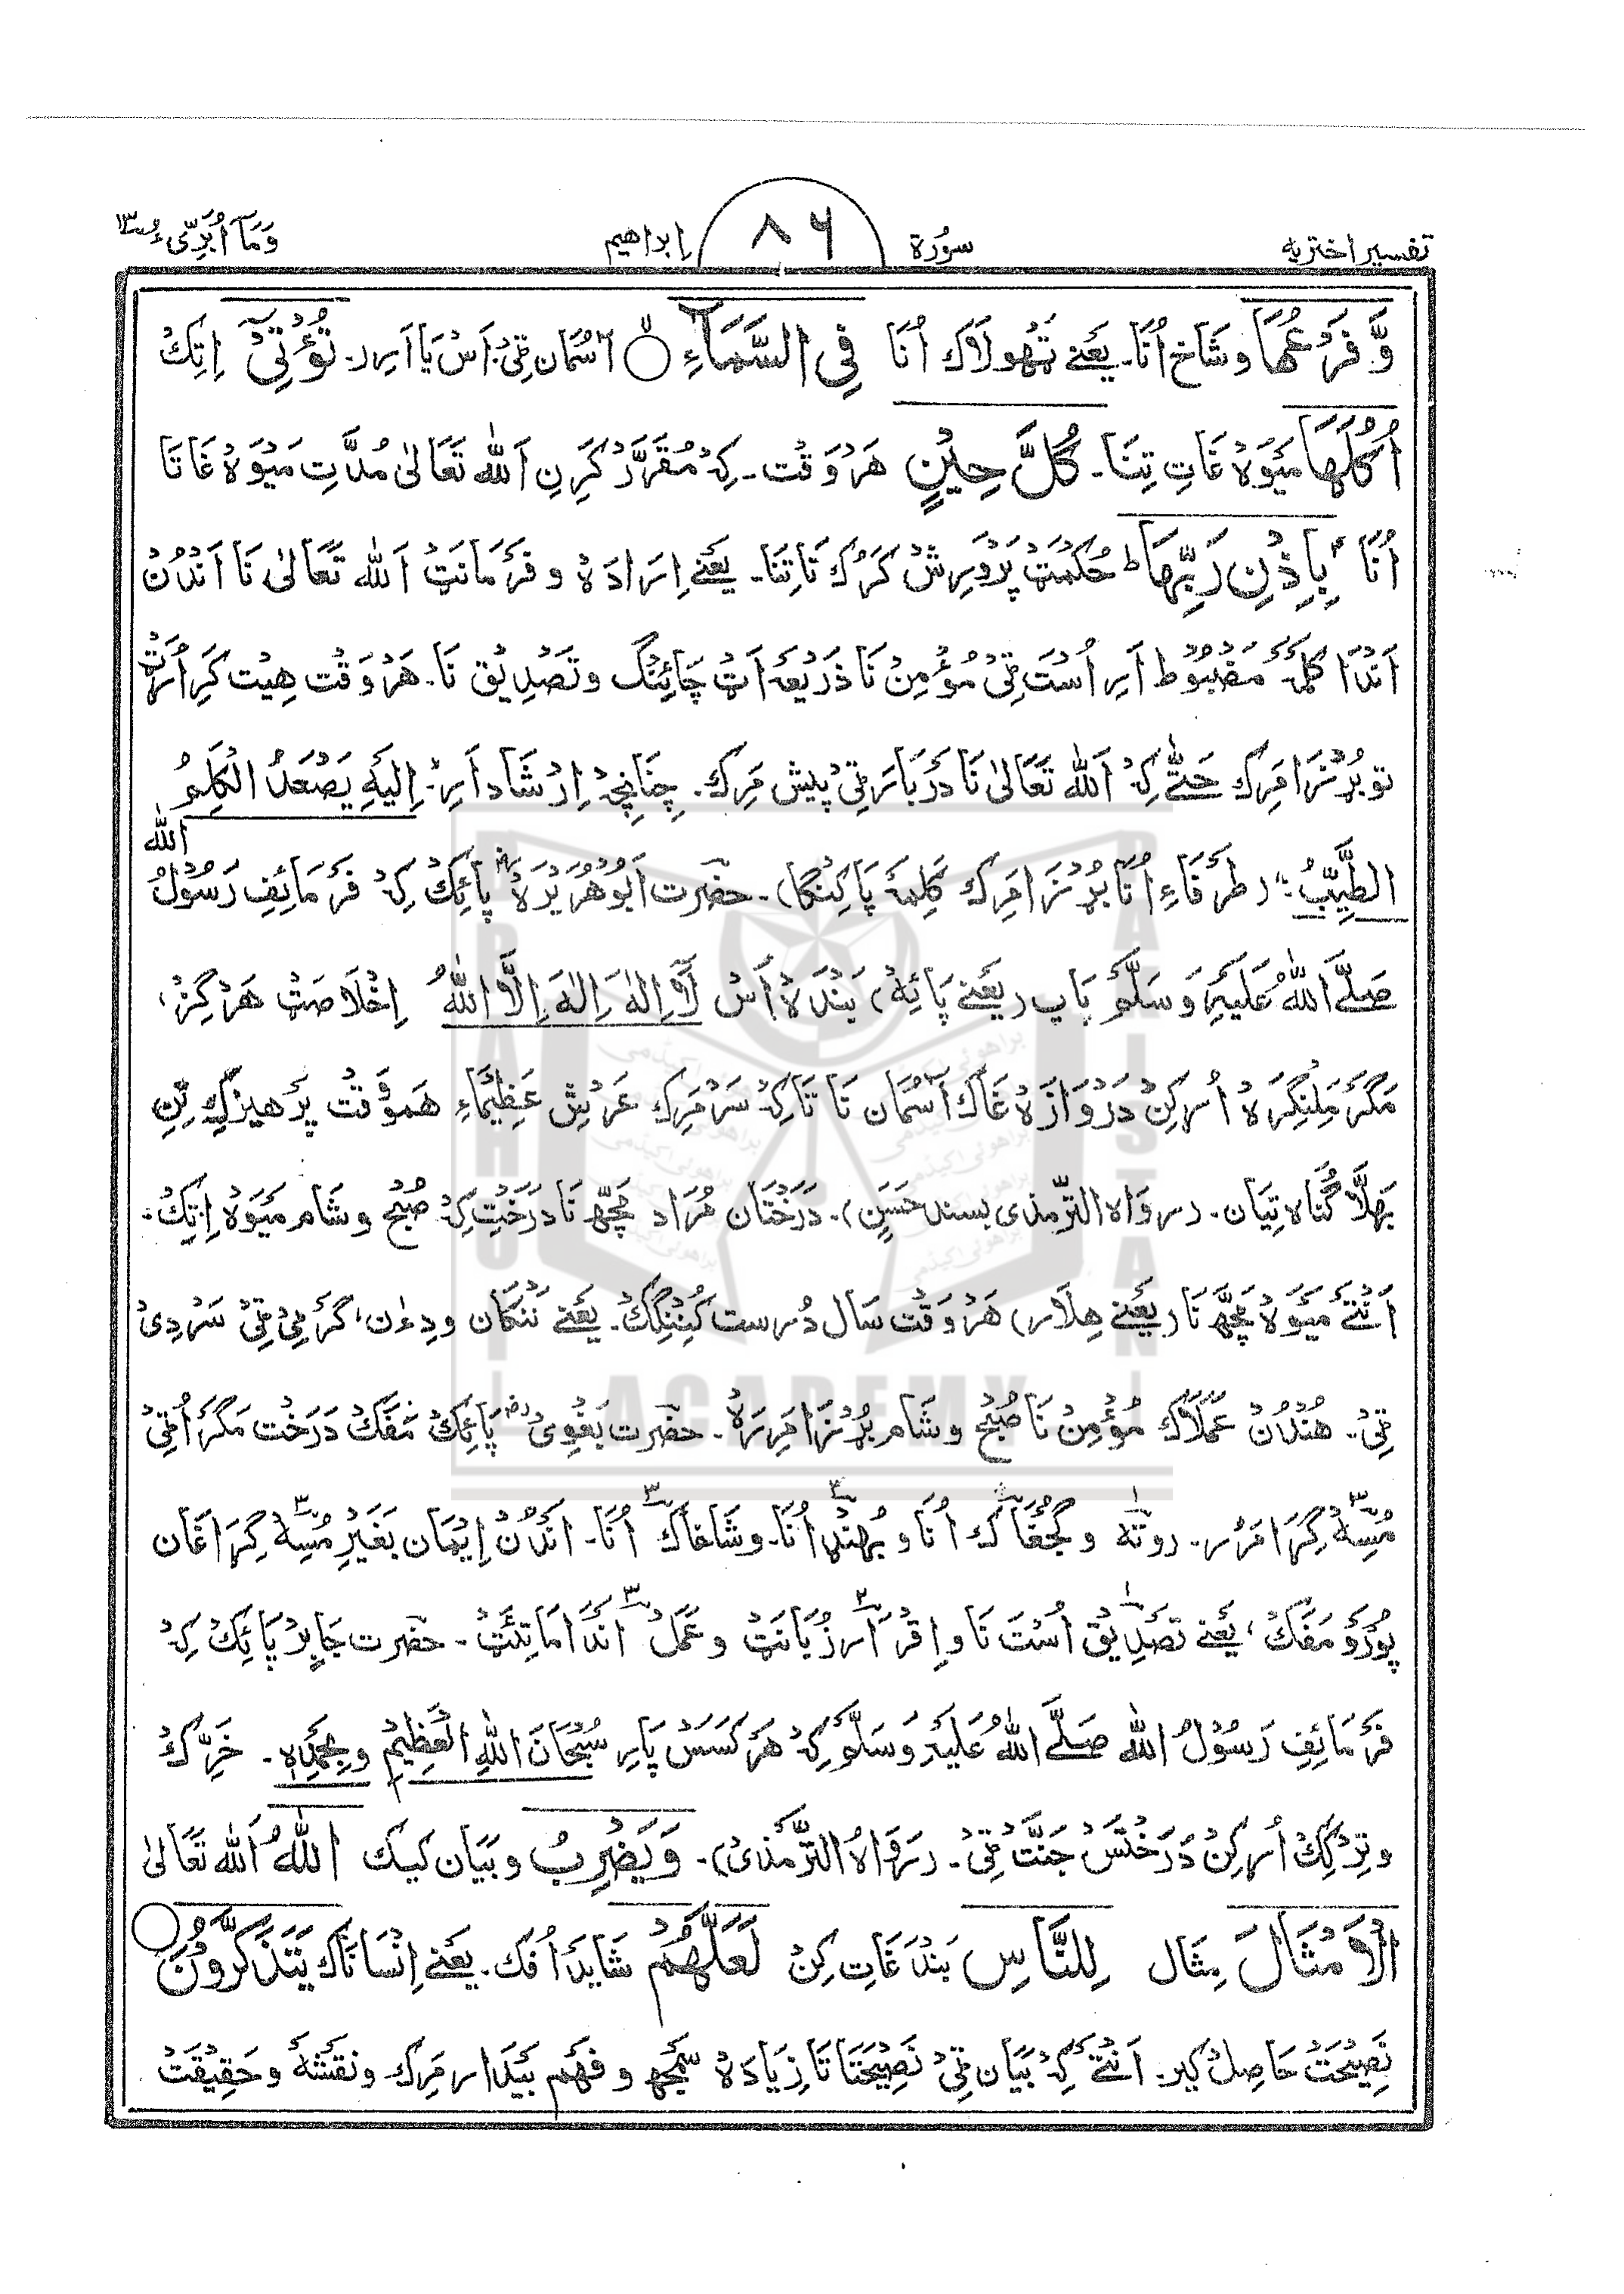 تفسیر اختریه
سُورَة ٨٦ اِبراهیم
وَمَآ اُبَرِّیُٔ ١٣
وَّ فَرْعُهَا وشَاخ اُنَا۔ یعَنے تَهُولَاک اُنَا فِی السَّمَآءِ ۙ اٰسُمَان ٹِیْ۔ اَسْ یَا اَیرد۔ تُؤْتِیْٓ اِتِکْ
اُکُلَهَا مَیْوَہْ غَاتِ تِنَا۔ کُلَّ حِیْنٍۭ هَرْوَقت۔ کِہْ مُقَرَّرْ کَرِنِ اَللّٰه تَعَالیٰ مُدَّتِ مَیْوَہْ غَاتَا
اُنَا بِاِذْنِ رَبِّهَا ؕ حُکْمَتْ پَرْوَرِشْ کَرُک نَا تِنَا۔ یعَنے اِرَادَہ وفَرْمَانَٹْ اَللّٰه تَعَالیٰ نَا اَنْدُنْ
اَنْدَا کَلِمَہْ مَضْبُوْط اَرِ اُسْتَ ٹِیْ مُؤْمِنْ نَا ذَرِیْعَہ اَٹْ چَائِنْگ وتَصْدِیْق نَا۔ هَرْوَقْت هِیْت کَرِ اُرَٹْ
تو بُرْنزَا مَرِک حَتّٰے کِہْ اَللّٰه تَعَالیٰ نَا دَرْبَارَ ٹِیْ پَیش مَرِک۔ چِنَانِچِہْ اِرْشَاد اَرِ۔ اِلَیْهِ یَصْعَدُ الْکَلِمُ
الطَّیِّبُ ؛" (طرَفَاءِ اُنَا بُرْنزَا مَرِک کَلِمَهٔ پَاکِنْگا)۔ حضرت اَبُوْهُرَیْرَہ پائِکْ کِہْ فَرْمَائِفِ رَسُوْلُ اللّٰه
صَلَّے اللّٰهُ عَلَیْهِ وَسَلَّمْ پَاپ (یَعَنے پَائِہْ) بَنْدَہْ اَسْ لَآ اِلٰهَ اِلَّا اللّٰهُ اِخْلَاصَٹْ هَرْگِزْ،
مَگَرْ مَلِنْگِرَہ اُرکِنْ دَرْوَازَہْ غَاک اٰسْمَان نَا تَاکِہْ سَرْمَرِک عَرْشِ عَظِیْمَاءِ هَموقْت پَرْهیزکِ
بَهلَّا گُنَاہ تِیَان۔ (رَوَاہ التِّرْمِذی بسند حَسَنٍ)۔ دَرَخْتَان مُرَاد مَچّھ نَا دَرَخْتِ کِہْ صُبْح وشَام مَیْوَہ اِتِکْ۔
اَنْتَے مَیْوَہْ مَچّھ نَا (یَعَنے هِلَار) هَرْوَقْت سَال دُرست کُنِنْگِکْ۔ یعَنے نَنْکَان ودِءن، گَرْمِیْ ٹِیْ سَرْدِیْ
ٹِیْ۔ هُنْدُنْ عَمَلَاک مُؤْمِنْ نَا صُبْح وشَام بُرْنزَا مَرِرَہ۔ حضرت بَغَوِیْ پَائِکْ مَفَکْ دَرَخْت مَگَرْ اُٹِیْ
مُسِّہْ گِرَا مَرُر۔ روتَہ و اُنَا و بُهنْد اُنَا۔ وشَاخَاک اُنَا۔ اَنْدُنْ اِیْمَان بَغَیْر مُسِّہْ گِرَاغَان
پُوْرَوْ مَفَکْ، یعَنے تصَدِیْق اُسْتَ نَا و اِقْرَار زُبَانَٹْ وعَمَل اَنْدَامَاتِیَٹْ۔ حضرت جَابِرْ پَائِکْ کِہْ
فَرْمَائِفِ رَسُوْلُ اللّٰه صَلَّے اللّٰهُ عَلَیْهِ وَسَلَّمْ کِہْ هَرْکَسَسْ پَارِ سُبْحَانَ اللّٰهِ الْعَظِیْمِ وبِحَمْدِہ۔ خَرِّکْ
ودِرْکِکْ اُرکِنْ دَرَخْتَسْ جَنَّتْ ٹِیْ۔ (رَوَاہُ التِّرْمِذِیْ)۔ وَیَضْرِبُ وبَیَان کیک اللّٰهُ اَللّٰه تَعَالیٰ
الْاَمْثَالَ مِثَال لِلنَّاسِ بَنْدَغَاتِ کِنْ لَعَلَّهُمْ شَایَدْ اُفک۔ یعَنے اِنْسَانَاک یَتَذَکَّرُوْنَ ○
نَصِیْحَتْ حَاصِلْ کیر۔ اَنْتَے کِہْ بَیَان ٹِیْ نَصِیْحَتَا تَا زِیَادَہ سَمَجھ وفَهْم بَیْدَار مَرِک ونَقْشَہ وحَقِیْقَتْ
BRAHUI ACADEMY PAKISTAN
براهوئی اکیڈمی